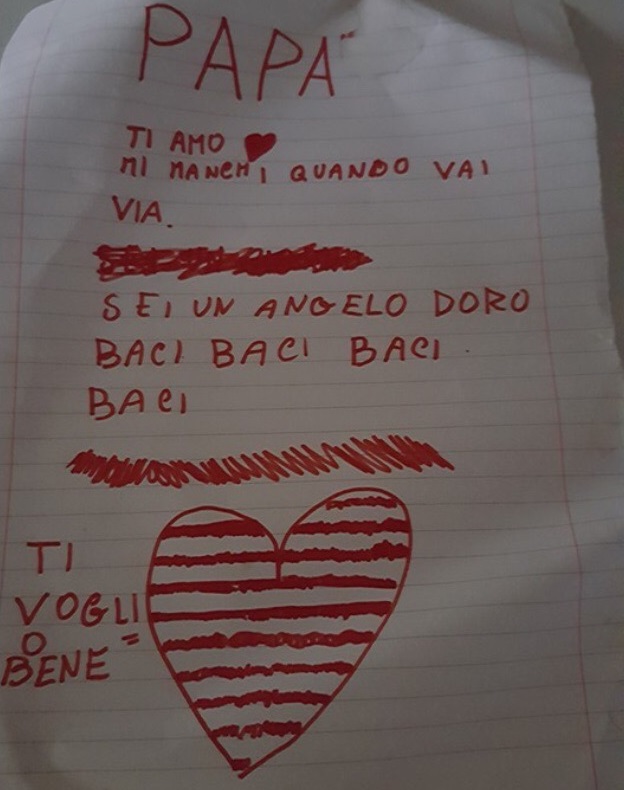 PAPA"
TI AMO ♥
MI MANCHI QUANDO VAI
VIA.
SEI UN ANGELO DORO
BACI BACI BACI.
BACI
TI
VOGLI
O =
BENE